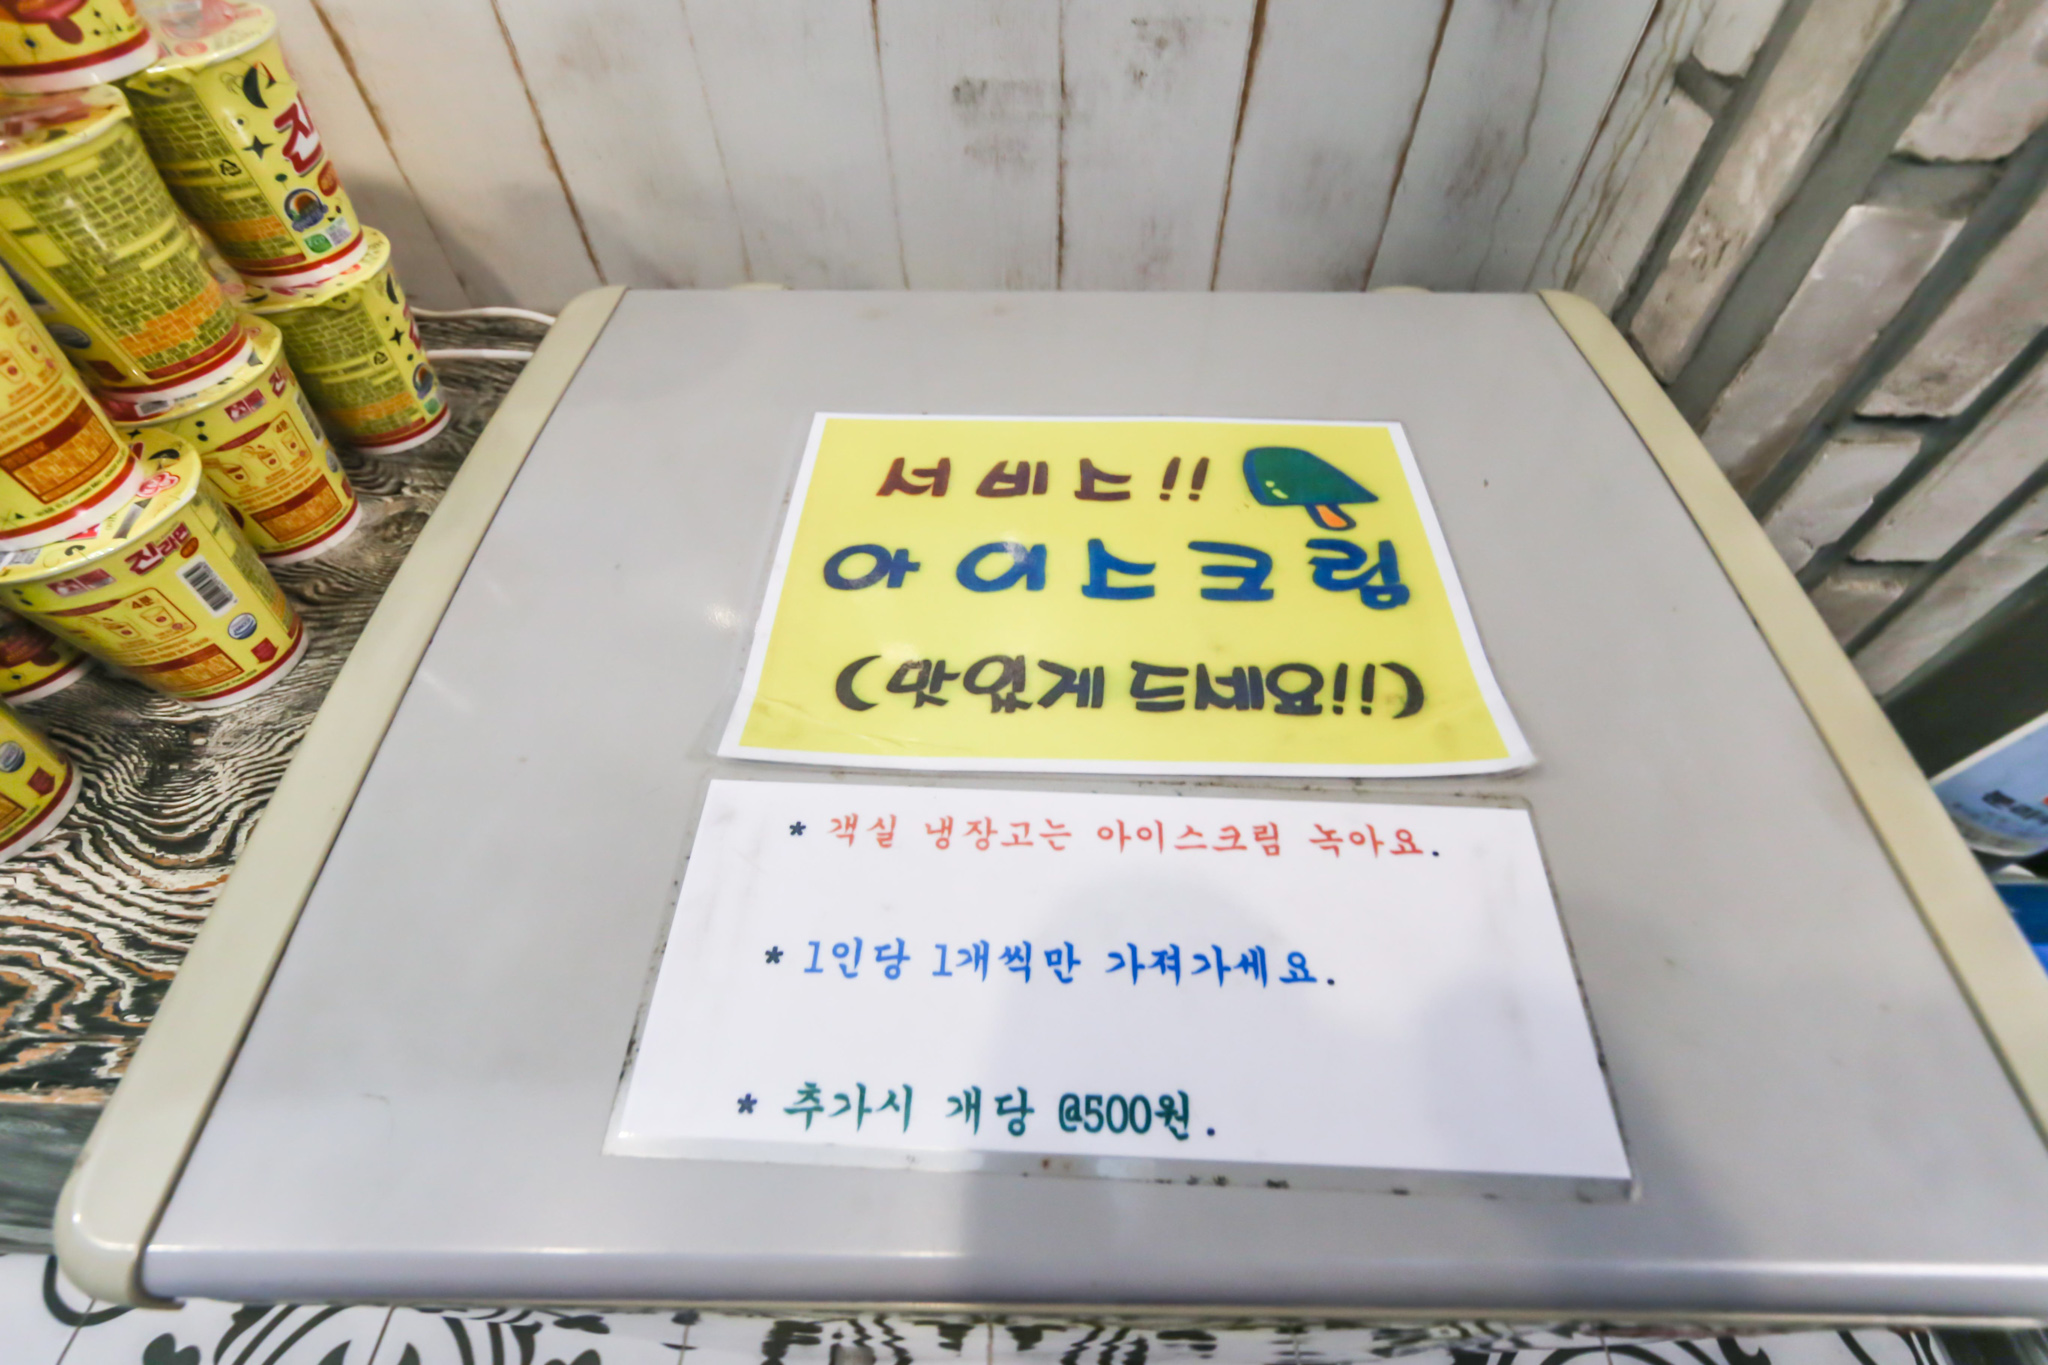 서비스!!
아이스크림
(맛있게 드세요!!)
* 객실 냉장고는 아이스크림 녹아요.
* 1인당 1개씩만 가져가세요.
* 추가시 개당 @500원.
진
진
진라면
4분
4분